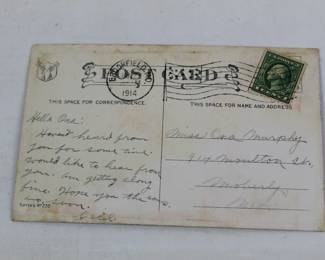 BROOKFIELD, MO.
1914
POST CARD
THIS SPACE FOR CORRESPONDENCE.
THIS SPACE FOR NAME AND ADDRESS.
Hello Ora:
Haven't heard from
you for some time.
would like to hear from
you. am getting along
fine. Hope you the same.
soon.
Miss Ora Murphy
919 Moulton St.
Moberly
Mo.
Series №